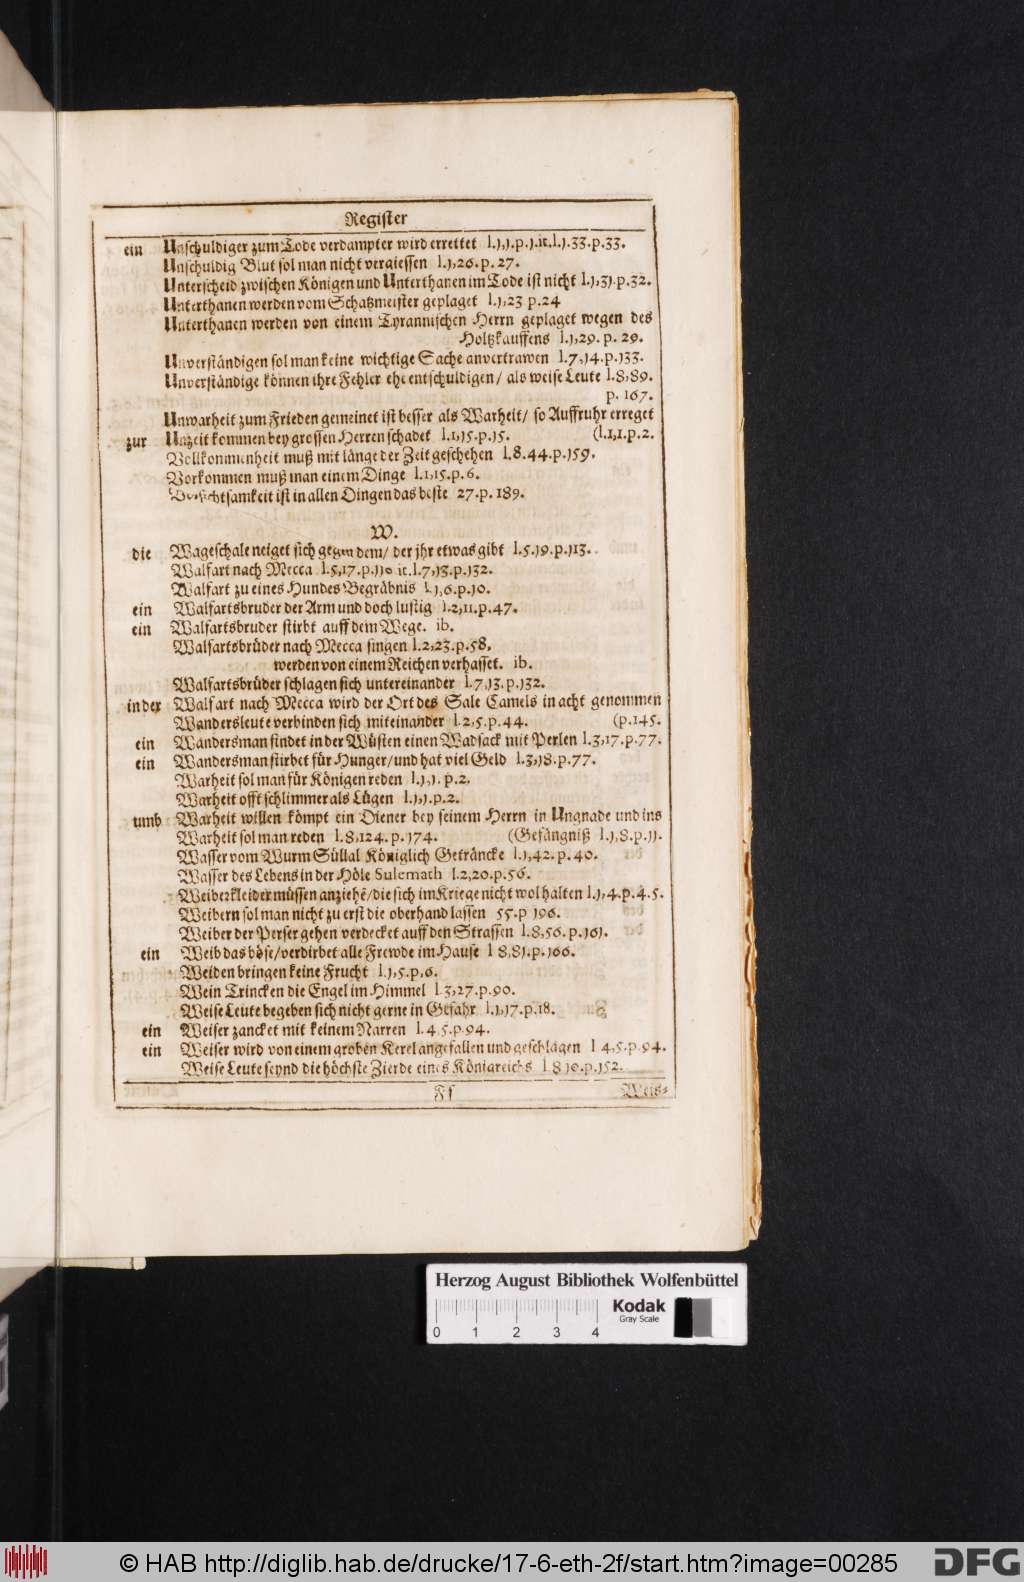 Register
ein Unschuldiger zum Tode verdampter wird errettet l.1,1.p.1.it.l.1.33.p.33.
Unschuldig Blut sol man nicht vergiessen l.1,26.p.27.
Unterscheid zwischen Königen und Unterthanen im Tode ist nicht l.1,31.p.32.
Unterthanen werden vom Schatzmeister geplaget l.1,23 p.24
Unterthanen werden von einem Tyrannischen Herrn geplaget wegen des
Holtzkauffens l.1,29. p. 29.
Unverständigen sol man keine wichtige Sache anvertrawen l.7,14.p.133.
Unverständige können ihre Fehler ehe entschuldigen / als weise Leute l.8,89.
p. 167.
Unwarheit zum Frieden gemeinet ist besser als Warheit / so Auffruhr erreget
zur Unzeit kommen bey grossen Herren schadet l.1,15.p.15. (l.1,1.p.2.
Vollkommenheit muß mit länge der Zeit geschehen l.8.44.p.159.
Vorkommen muß man einem Dinge l.1,15.p.6.
Vorsichtsamkeit ist in allen Dingen das beste 27.p.189.
W.
die Wageschale neiget sich gegen dem / der jhr etwas gibt l.5.19.p.113.
Walfart nach Mecca l.5,17.p.110 it.l.7,13.p.132.
Walfart zu eines Hundes Begräbnis l.1,6.p.10.
ein Walfartsbruder der Arm und doch lustig l.2,11.p.47.
ein Walfartsbruder stirbt auff dem Wege. ib.
Walfartsbrüder nach Mecca singen l.2,23.p.58.
werden von einem Reichen verhasset. ib.
Walfartsbrüder schlagen sich untereinander l.7,13.p.132.
in der Walfart nach Mecca wird der Ort des Sale Camels in acht genommen
Wandersleute verbinden sich miteinander l.2,5.p.44. (p.145.
ein Wandersman findet in der Wüsten einen Wadsack mit Perlen l.3,17.p.77.
ein Wandersman stirbet für Hunger / und hat viel Geld l.3,18.p.77.
Warheit sol man für Königen reden l.1,1. p.2.
Warheit offt schlimmer als Lügen l.1,1.p.2.
umb Warheit willen kömpt ein Diener bey seinem Herrn in Ungnade und ins
Warheit sol man reden l.8,124.p.174. (Gefängniß l.1,8.p.11.
Wasser vom Wurm Süllal Königlich Geträncke l.1,42.p.40.
Wasser des Lebens in der Höle Sulemath l.2,20.p.56.
Weiberkleider müssen anziehē / die sich im Kriege nicht wol halten l.1,4.p.4.5.
Weibern sol man nicht zu erst die oberhand lassen 55.p 196.
Weiber der Perser gehen verdecket auff den Strassen l.8,56.p.161.
ein Weib das böse / verdirbet alle Frewde im Hause l 8,81.p.166.
Weiden bringen keine Frucht l.1,5.p.6.
Wein Trincken die Engel im Himmel l.3,27.p.90.
Weise Leute begeben sich nicht gerne in Gefahr l.1,17.p.18.
ein Weiser zancket mit keinem Narren l.4.5.p.94.
ein Weiser wird von einem groben Kerel angefallen und geschlagen l 4,5.p.94.
Weise Leute seynd die höchste Zierde eines Königreichs l 8 10.p.152.
Ff Weis=
Herzog August Bibliothek Wolfenbüttel
0 1 2 3 4
Kodak
Gray Scale
© HAB http://diglib.hab.de/drucke/17-6-eth-2f/start.htm?image=00285
DFG